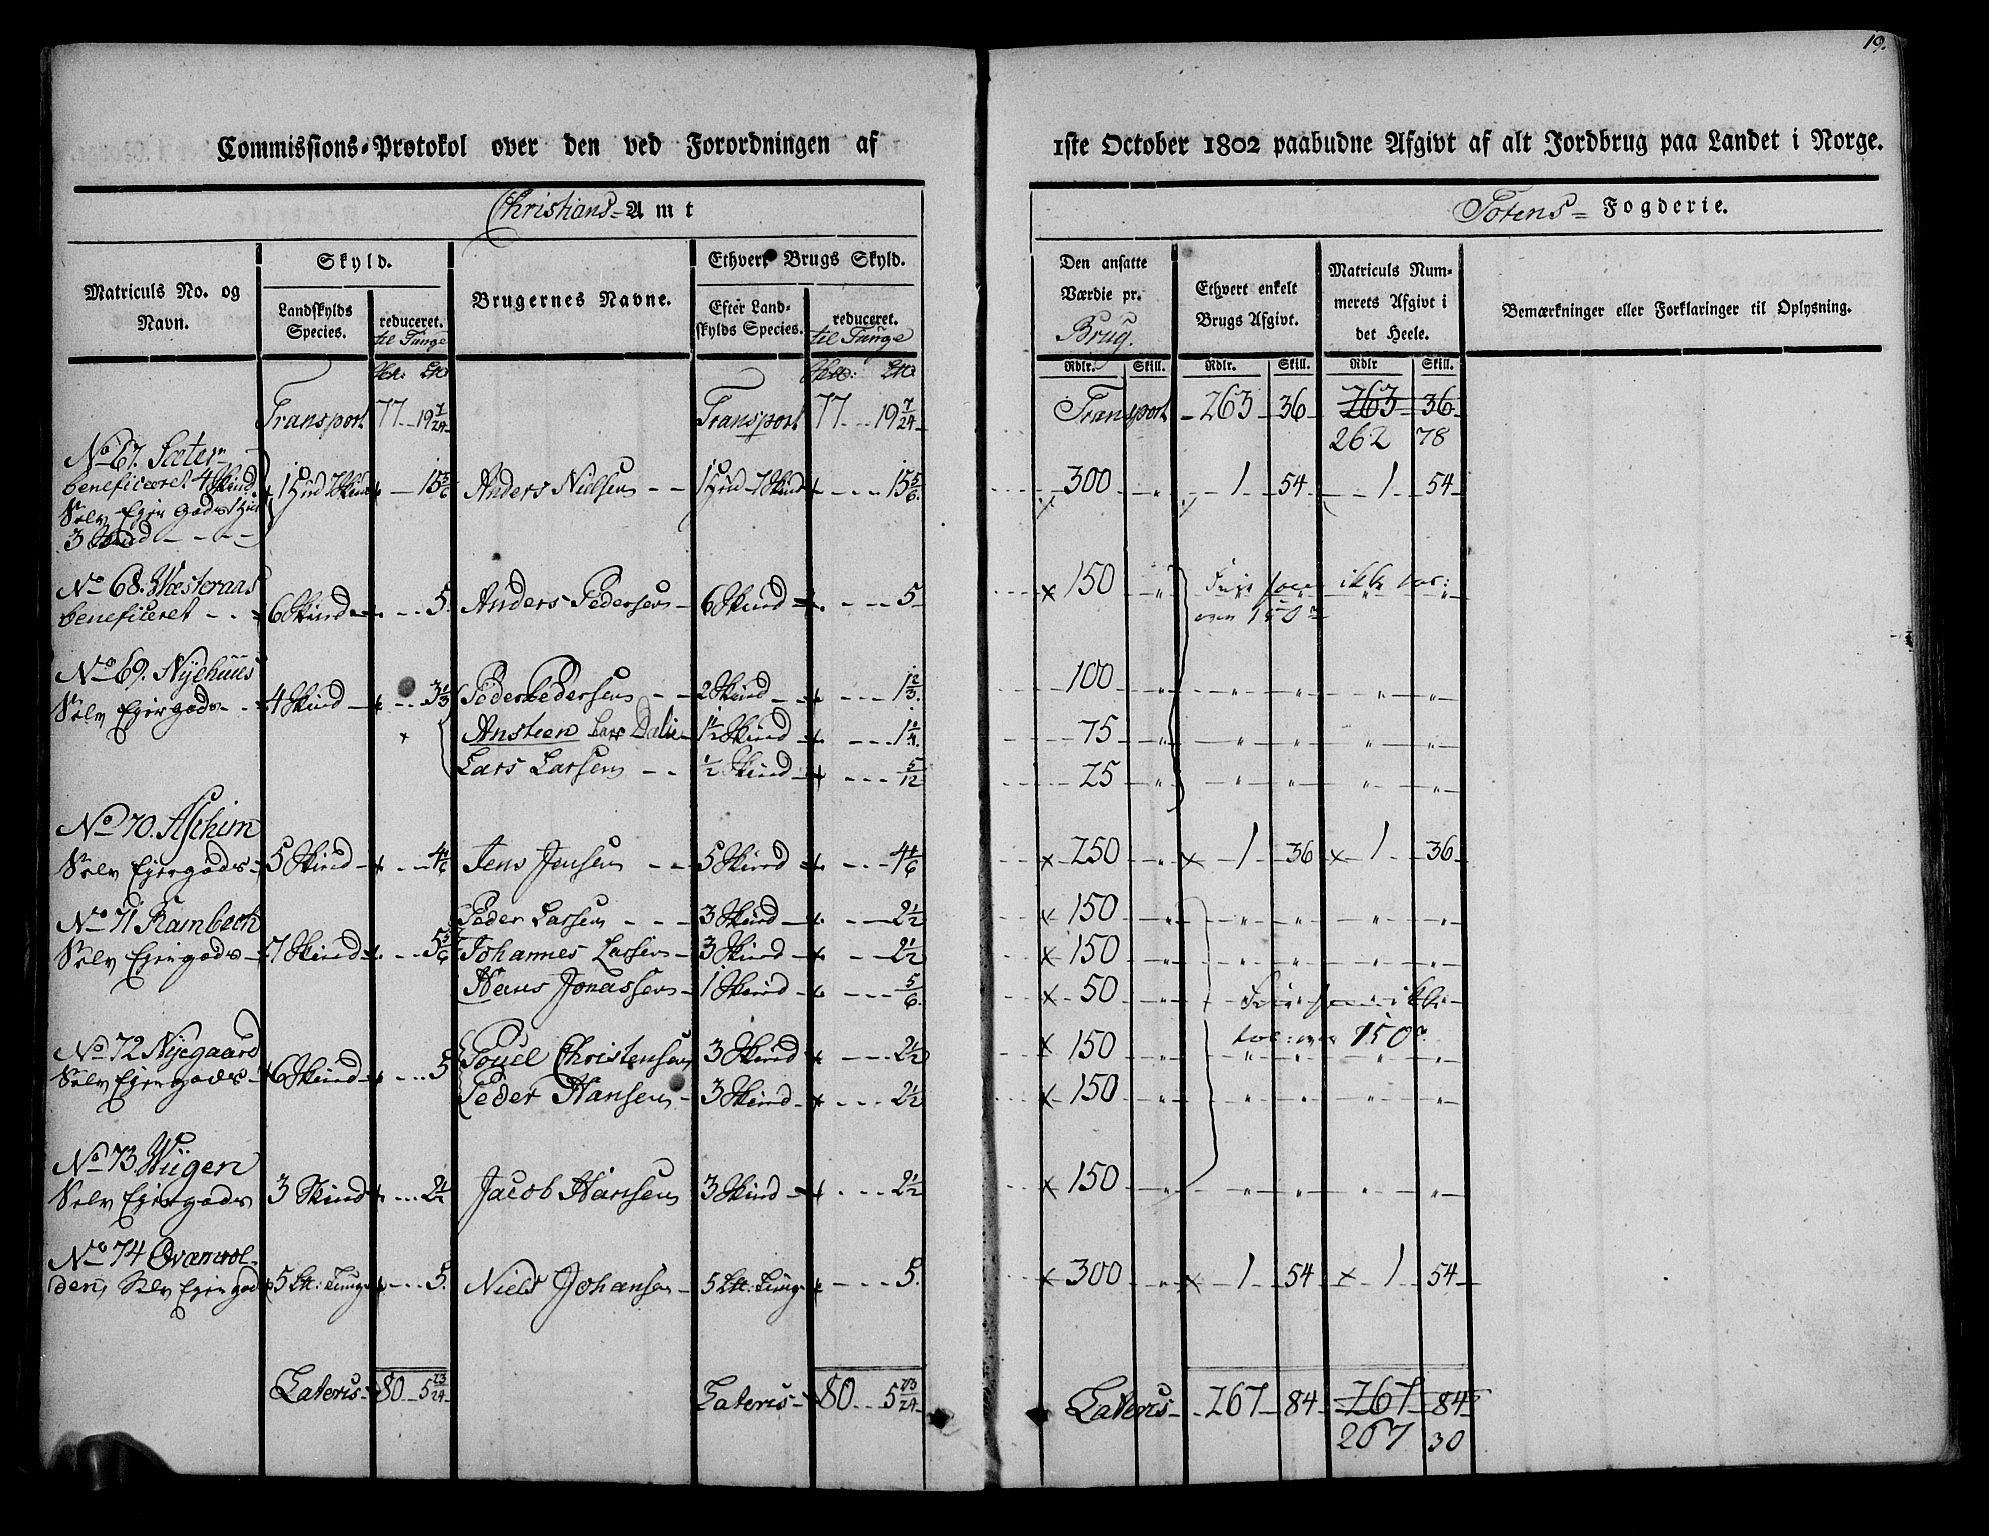 19.
Commissions-Protokol over den ved Forordningen af 1ste October 1802 paabudne Afgivt af alt Jordbrug paa Landet i Norge.
Christians-Amt
Totens = Fogderie.
Matriculs No. og Navn.
Skyld.
Landskylds Species.
reduceret.
til Tunge
Brugernes Navne.
Ethvert Brugs Skyld.
Efter Landskylds Species.
reduceret.
til Tunge
Den ansatte Værdie pr.
Brug.
Ethvert enkelt Brugs Afgivt.
Matriculs Nummerets Afgivt i det Heele.
Bemærkninger eller Forklaringer til Oplysning.
Rdlr. Skill. Rdlr. Skill. Rdlr Skill.
Transport 77 - 19 7/24 Transport 77 - 19 7/24 Transport 263 36 263 36
262 78
No 67. Sæter
beneficeret 4 Skind
Selv Ejer Gods 1 Hud
3 Skind
1 Hud 7 Skind 15 5/6 Anders Nielsen 1 Hud 7 Skind 15 5/6 300 " 1 54 1 54
No 68. Westeraas
beneficeret 6 Skind 5. Anders Pedersen 6 Skind 5 150 "
ikke
150
No 69. Nyehuus
Selv Ejergods 4 Skind 3 1/3 Peder Pedersen 2 Skind 1 2/3. 100 " " " " "
Ansteen Lars Dalie 1 1/2 Skind 1 1/4. 75 " " " " "
Lars Larsen 1/2 Skind 5/12 25 " " " " "
No 70. Aschim
Selv Ejergods 5 Skind 4 1/6 Jens Jensen 5 Skind 4 1/6 250 " 1 36 1 36
No 71 Rambech
Selv Ejergods 7 Skind 5 5/6
Peder Larsen 3 Skind 2 1/2 150 " " " " "
Johannes Larsen 3 Skind 2 1/2 150 " " " " "
Hans Jonassen 1 Skind 5/6. 50 "
150
No 72 Nyegaard
Selv Ejergods 6 Skind 5
Povel Christensen 3 Skind 2 1/2 150 " " " " "
Peder Hansen 3 Skind 2 1/2 150 " " " " "
No 73 Wiigen
Selv Ejergods 3 Skind 2 1/2 Jacob Hansen 3 Skind 2 1/2 150 " " " " "
No 74 Qvænvolden, Selv Ejergods 5 Lb: Tunge 5. Niels Johansen 5 Lb: Tunge 5. 300 " 1 54 1 54
Lateris 80 - 5 23/24 Lateris 80 - 5 23/24 Lateris 267 84 267 84
267 30